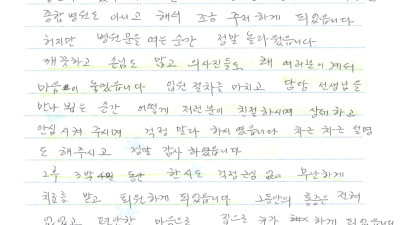 종합병원도 아니고 해서 조금 주저하게 되었습니다
허지만 병원문을 여는 순간 정말 놀라웠습니다
깨끗하고 손님도 많고 의사진들도 꽤 여러분이 계셔
마음이 놓였습니다 입원 절차를 마치고 담당 선생님을
만나 뵙는 순간 어떻게 저런분이 친절하시며 상세하고
안심시켜 주시며 걱정 말라 하시였습니다 차근 차근 설명
도 해주시고 정말 감사하였습니다
그후 3박 4일 동안 한시도 걱정근심 없이 무산하게
치료를 받고 퇴원하게 되었습니다 그동안의 통증은 전혀
없었고 편안한 마음으로 집으로 귀가 하게 되었습니다